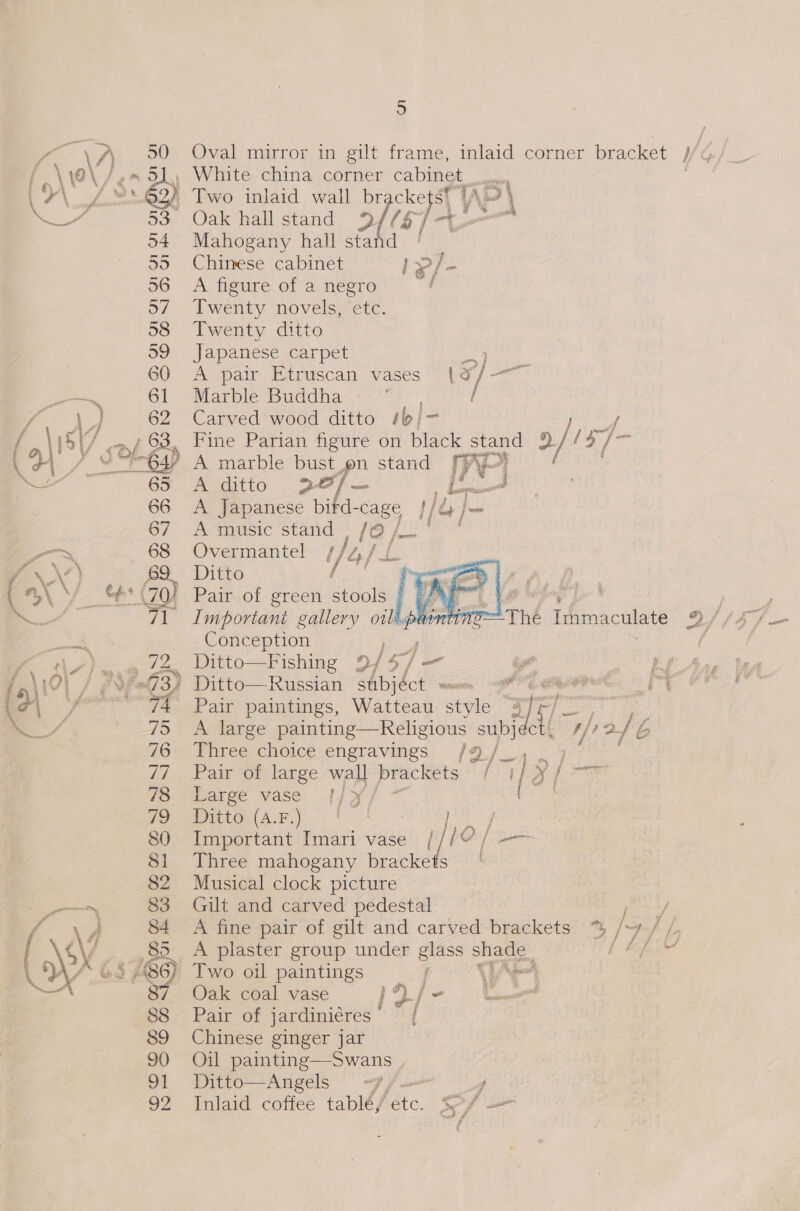 5
50 Oval mirror in gilt frame, inlaid corner bracket
51 White china corner cabinet
62 Two inlaid wall brackets
53 Oak hall stand 2/15/-
54 Mahogany hall stand
55 Chinese cabinet 12/-
56 A figure of a negro
57 Twenty novels, etc.
58 Twenty ditto
59 Japanese carpet
60 A pair Etruscan vases 18/-
61 Marble Buddha
62 Carved wood ditto 16/-
63 Fine Parian figure on black stand 2/15/-
64 A marble bust on stand
65 A ditto 20/-
66 A Japanese bird-cage 1/4/-
67 A music stand 10/-
68 Overmantel
69 Ditto
70 Pair of green stools
71 Important gallery oil painting—The Immaculate 2/15/-
Conception
72 Ditto—Fishing 2/5/-
73 Ditto—Russian subject
74 Pair paintings, Watteau style
75 A large painting—Religious subject
76 Three choice engravings
77 Pair of large wall brackets
78 Large vase
79 Ditto (A.F.)
80 Important Imari vase 1/10/-
81 Three mahogany brackets
82 Musical clock picture
83 Gilt and carved pedestal
84 A fine pair of gilt and carved brackets
85 A plaster group under glass shade
86 Two oil paintings
87 Oak coal vase 12/-
88 Pair of jardinières
89 Chinese ginger jar
90 Oil painting—Swans
91 Ditto—Angels 7/-
92 Inlaid coffee table, etc. 5/-